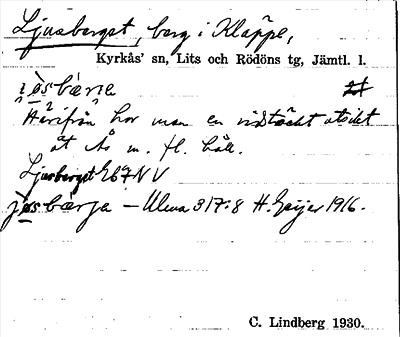 Ljusberget, berg i Kläppe,
Kyrkås' sn, Lits och Rödöns tg, Jämtl. l.
Härifrån har man en vidsträckt utsikt
åt Ås m. fl. håll.
Ljusberget E67NV
jøsbærja – Ulena 317:8 H. Geijer 1916.
C. Lindberg 1930.